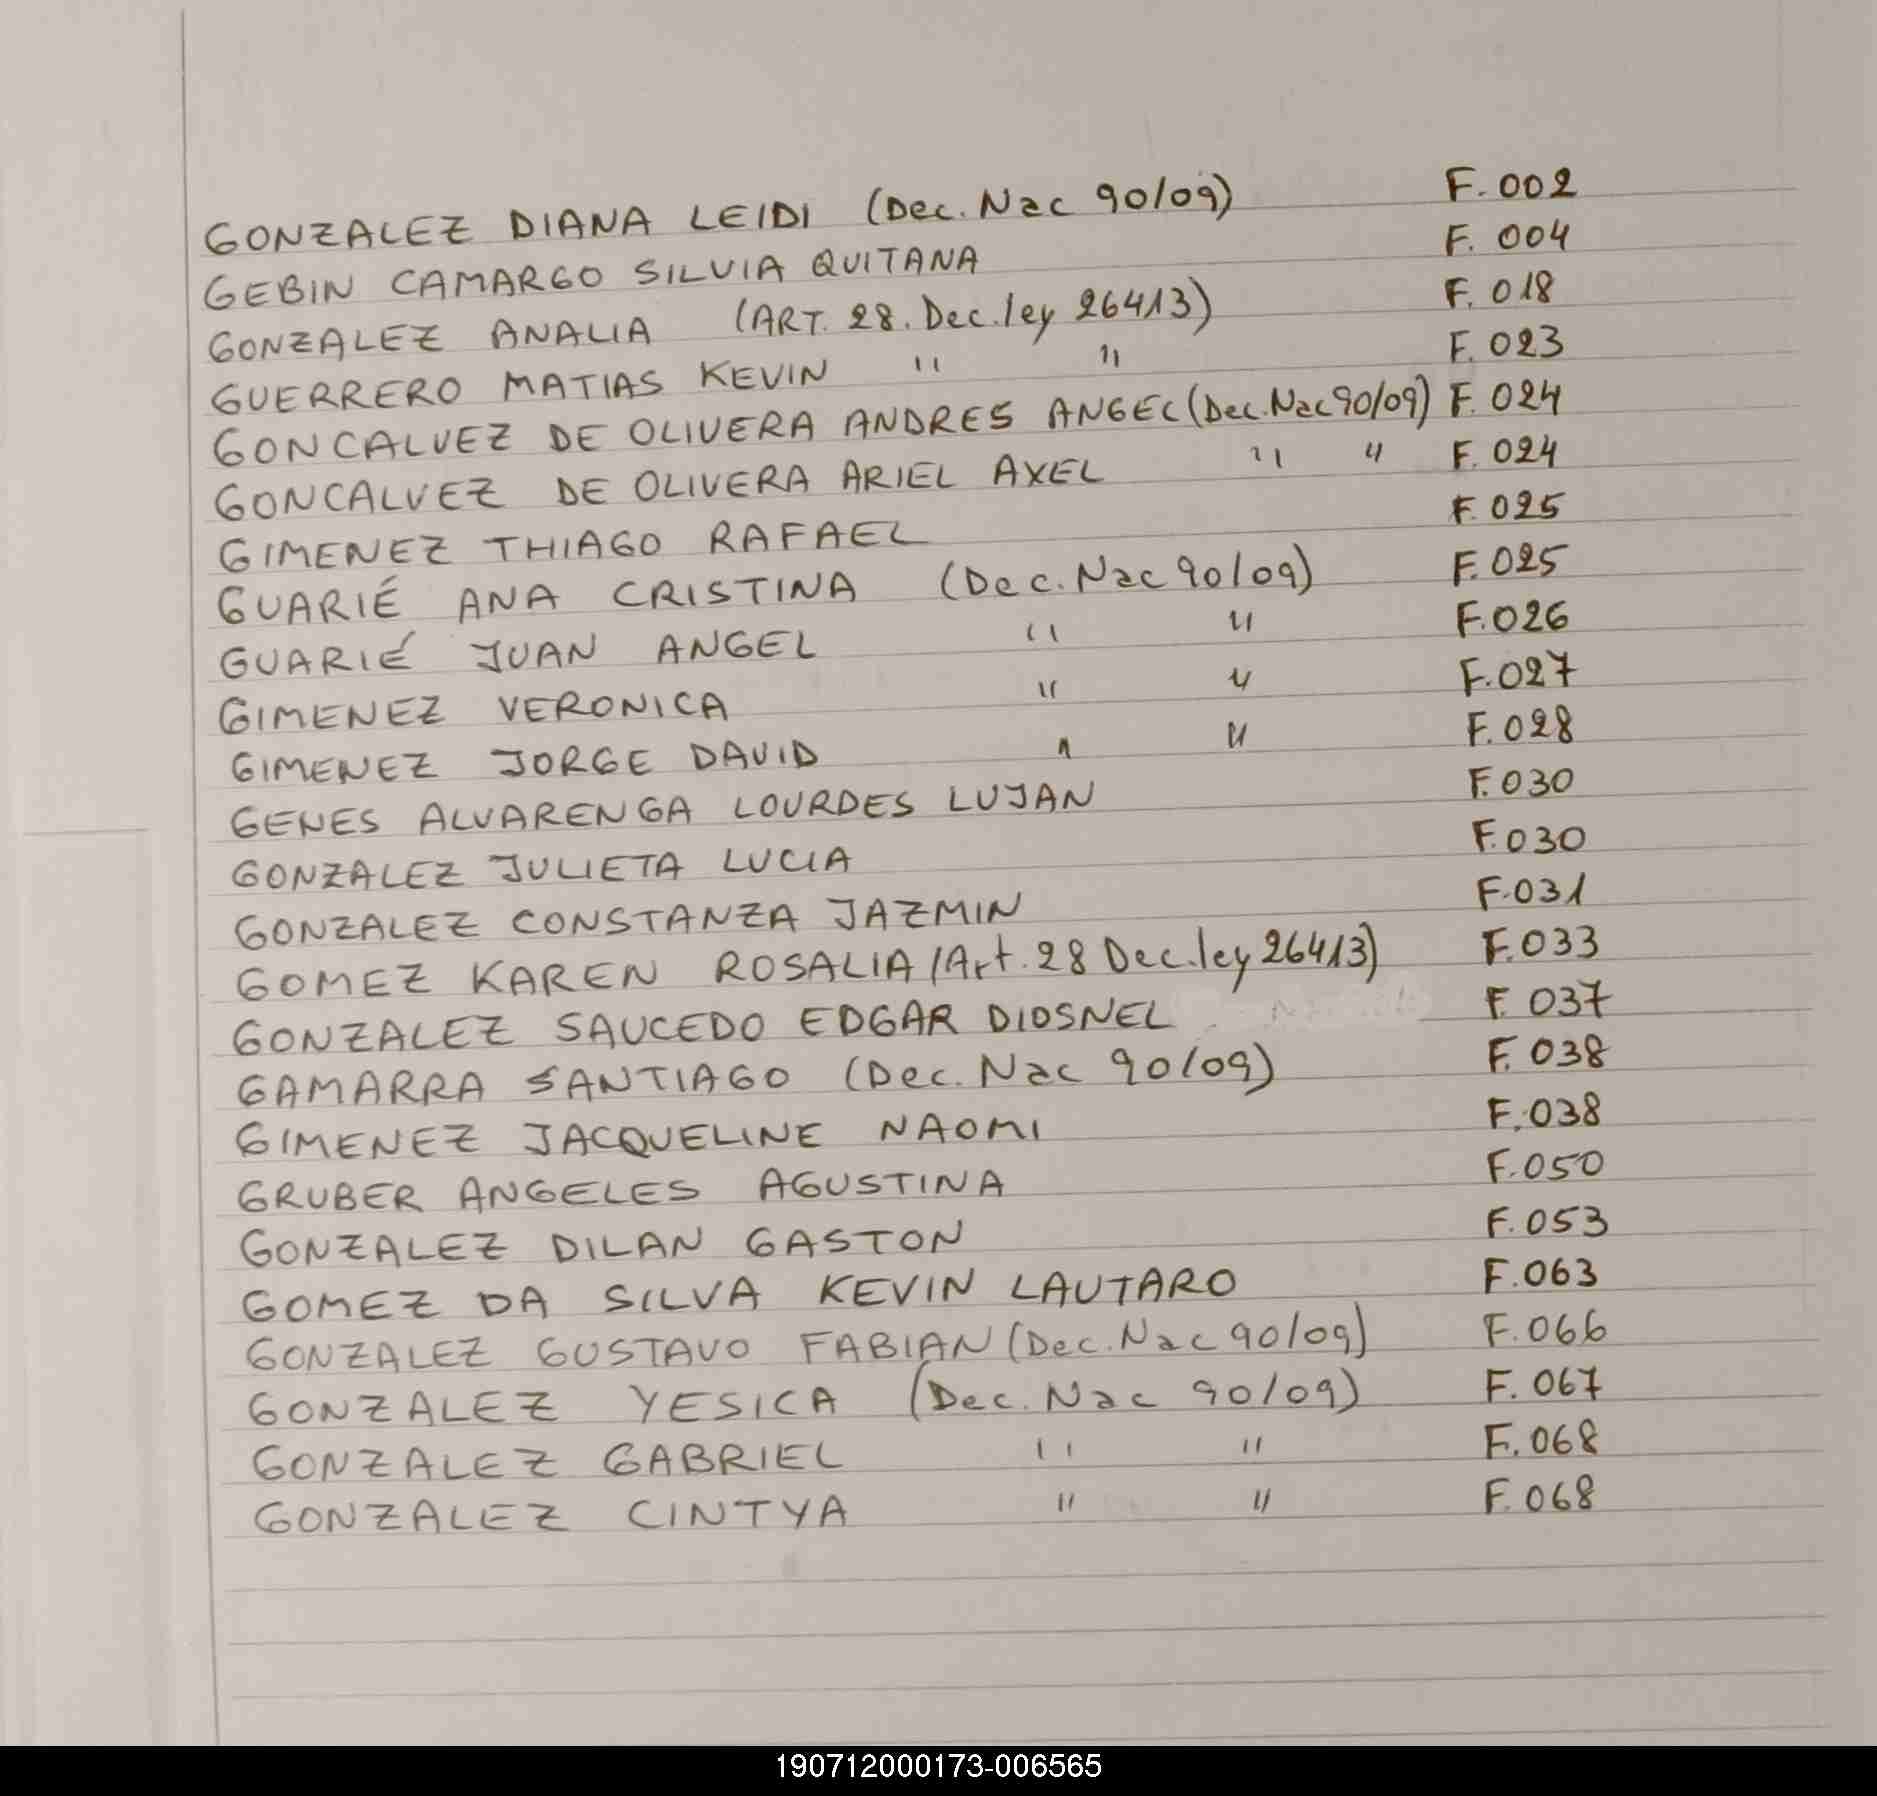 GONZALEZ DIANA LEIDI (Dec. Nac 90/09) F. 002
GEBIN CAMARGO SILVIA QUITANA F. 004
GONZALEZ ANALIA (ART. 28. Dec. ley 26413) F. 018
GUERRERO MATIAS KEVIN " " F. 023
GONCALVEZ DE OLIVERA ANDRES ANGEL (Dec. Nac 90/09) F. 024
GONCALVEZ DE OLIVERA ARIEL AXEL " " F. 024
GIMENEZ THIAGO RAFAEL F. 025
GUARIÉ ANA CRISTINA (Dec. Nac 90/09) F. 025
GUARIÉ JUAN ANGEL " " F. 026
GIMENEZ VERONICA " " F. 027
GIMENEZ JORGE DAVID " " F. 028
GENES ALVARENGA LOURDES LUJAN F. 030
GONZALEZ JULIETA LUCIA F. 030
GONZALEZ CONSTANZA JAZMIN F. 031
GOMEZ KAREN ROSALIA (Art. 28 Dec. ley 26413) F. 033
GONZALEZ SAUCEDO EDGAR DIOSNEL F. 037
GAMARRA SANTIAGO (Dec. Nac 90/09) F. 038
GIMENEZ JACQUELINE NAOMI F. 038
GRUBER ANGELES AGUSTINA F. 050
GONZALEZ DILAN GASTON F. 053
GOMEZ DA SILVA KEVIN LAUTARO F. 063
GONZALEZ GUSTAVO FABIAN (Dec. Nac 90/09) F. 066
GONZALEZ YESICA (Dec. Nac 90/09) F. 067
GONZALEZ GABRIEL " " F. 068
GONZALEZ CINTYA " " F. 068
190712000173-006565